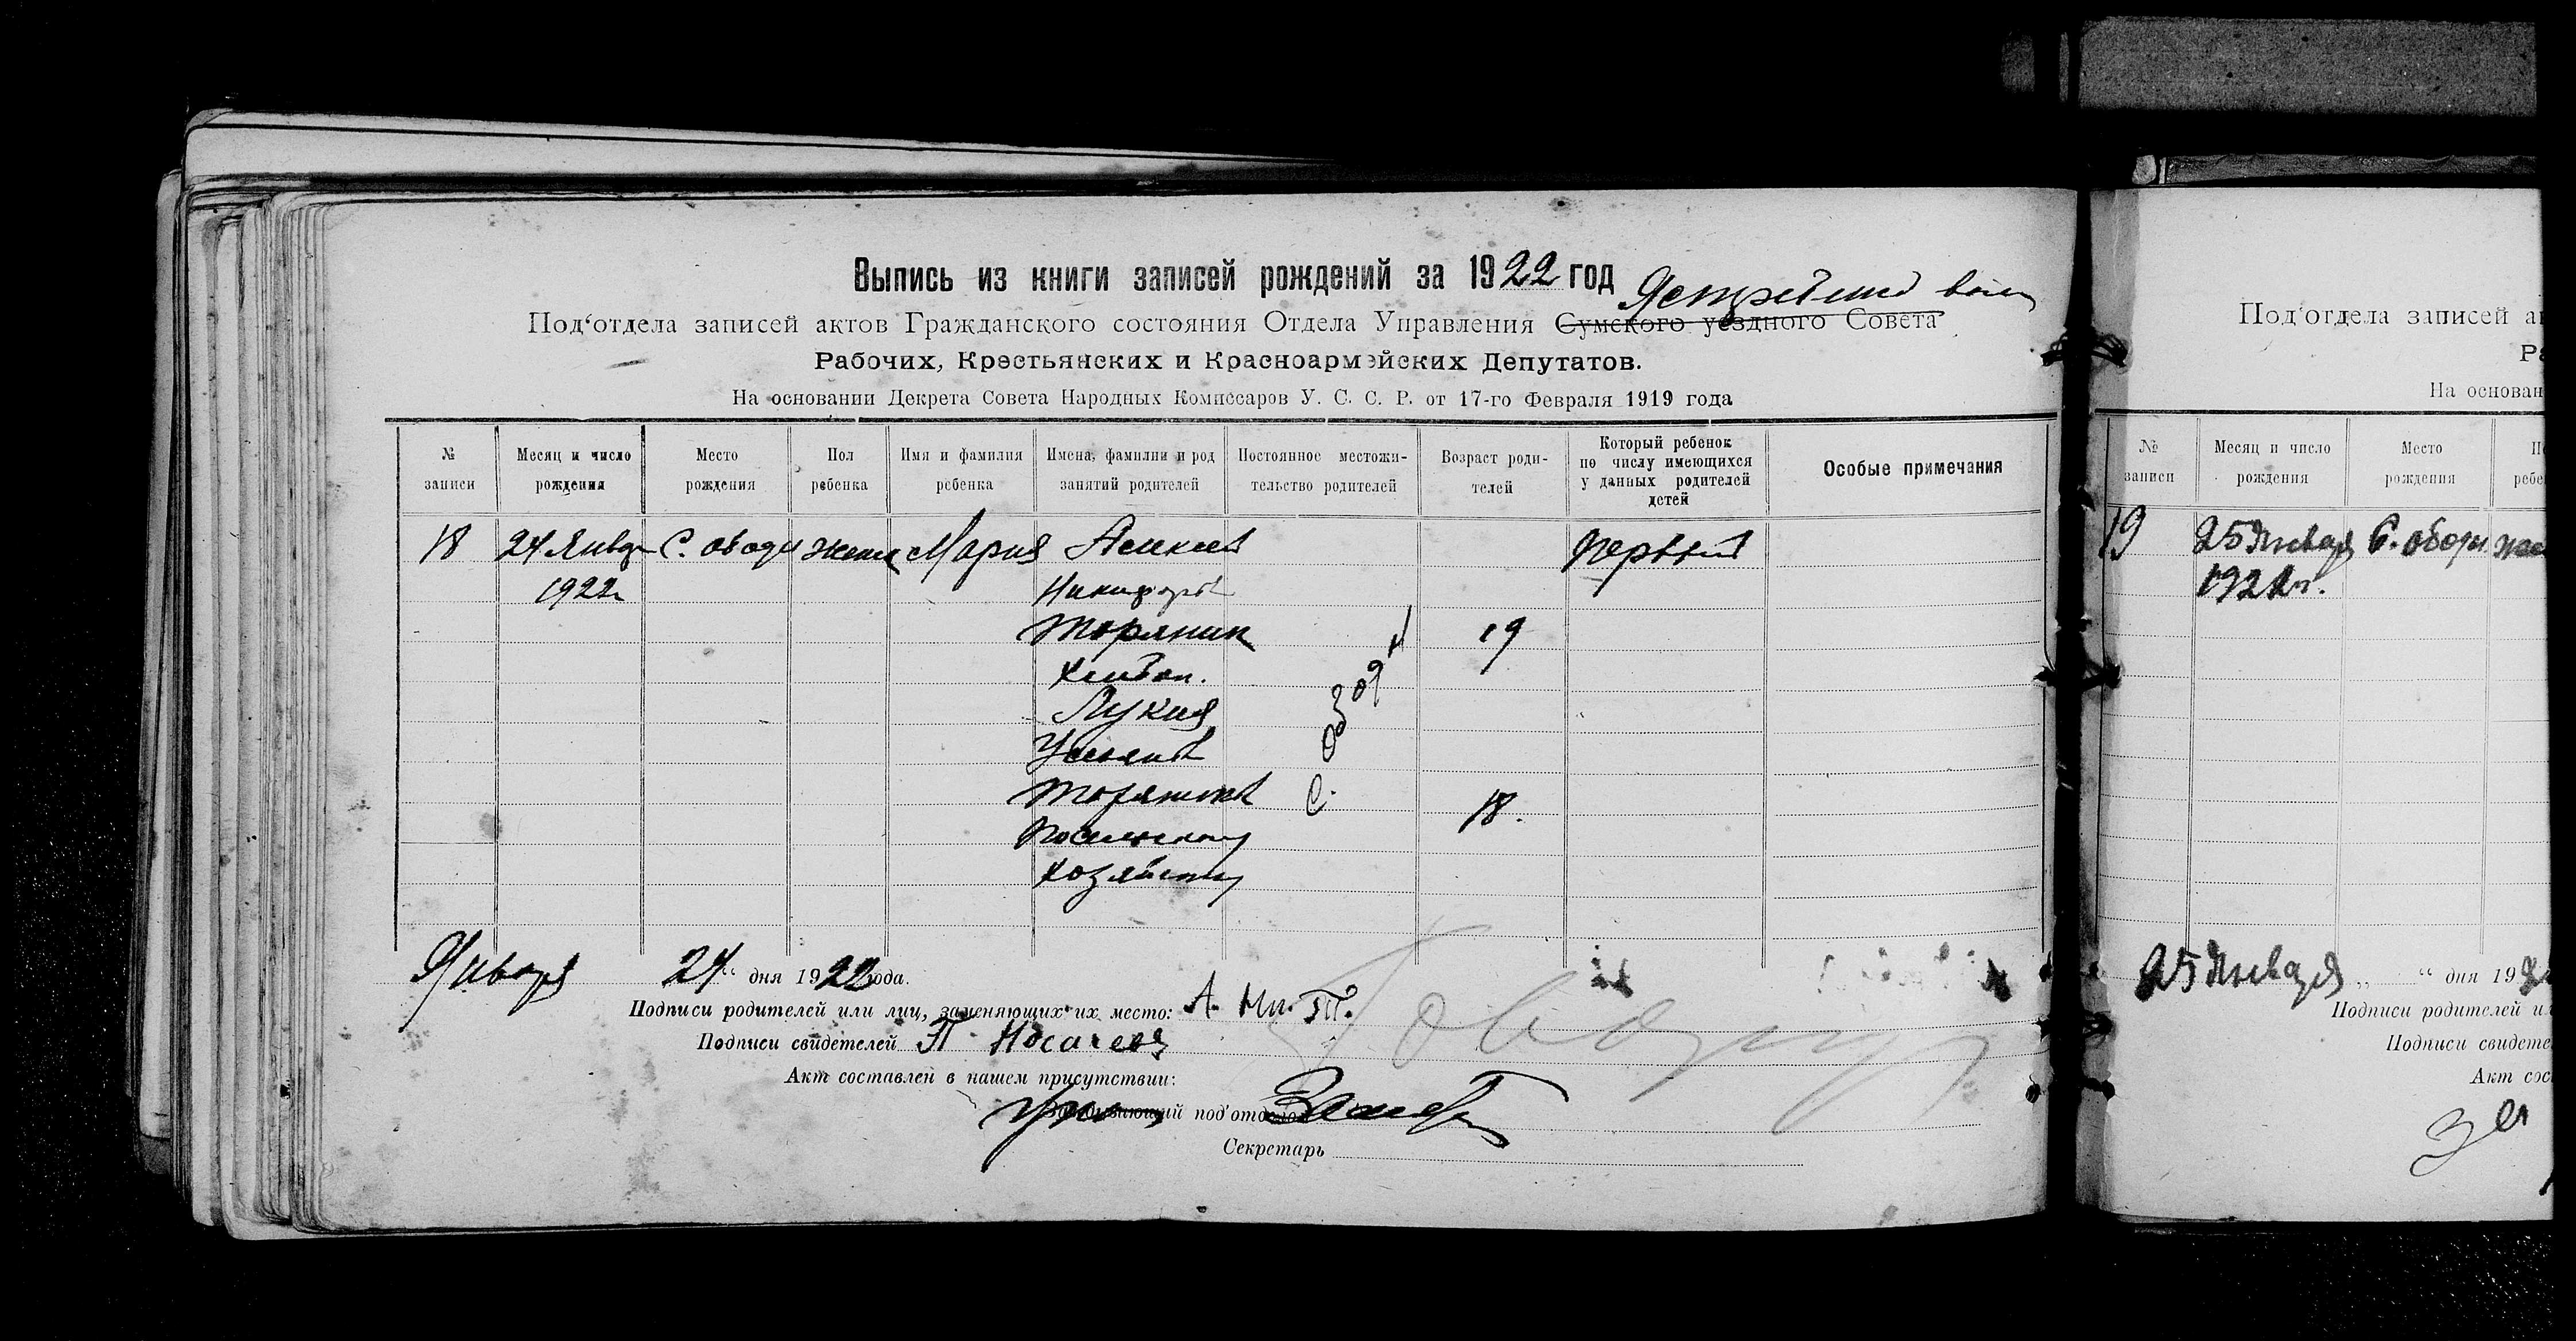 Выпись из книги записей рождений за 1922 год
Под‘отдела записей актов Гражданского состояния Отдела Управления Сумского уездного Совета
Рабочих, Крестьянских и Красноармейских Депутатов.
На основании Декрета Совета Народных Комиссаров У. С. С. Р. от 17-го Февраля 1919 года
№ записи
Месяц и число рождения
Место рождения
Пол ребенка
Имя и фамилия ребенка
Имена, фамилии и род занятий родителей
Постоянное местожительство родителей
Возраст родителей
Который ребенок по числу имеющихся у данных родителей детей
Особые примечания
18 24 Январ С. Ободы женск Мария Алексей первый
1922г
Никифоров
Торяник 19
Хлебоп.
Лукия
Ульянов
Торяников С. Ободы 18.
по сельскому
хозяйству
Января 24 “ дня 1922 года.
Подписи родителей или лиц, заменяющих их место: А. Ни. Т.
Подписи свидетелей П. Носачева
Акт составлен в нашем присутствии:
Заведывающий под‘отделом
Секретарь
Под‘отдела записей а
На основан
№ записи
Месяц и число рождения
Место рождения
19 25 Января С. Ободы
1922г.
25 Января „ “ дня 19
Подписи родителей и
Подписи свидете
Акт сос